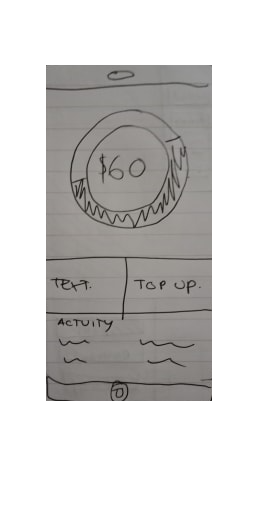 $60
TEXT.
TOP UP.
ACTUITY